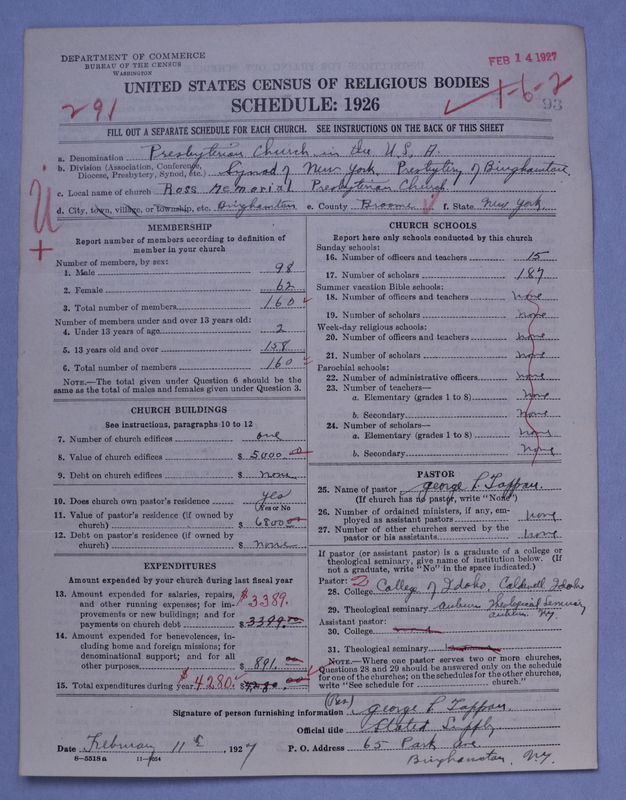 DEPARTMENT OF COMMERCE
BUREAU OF THE CENSUS
WASHINGTON
FEB 14 1927
UNITED STATES CENSUS OF RELIGIOUS BODIES
SCHEDULE: 1926
291
1-6-2
93
FILL OUT A SEPARATE SCHEDULE FOR EACH CHURCH. SEE INSTRUCTIONS ON THE BACK OF THIS SHEET
a. Denomination Presbyterian Church in the U.S.A.
b. Division (Association, Conference, Diocese, Presbytery, Synod, etc.) Synod of New York, Presbytery of Binghamton
c. Local name of church Ross Memorial Presbyterian Church
d. City, town, village, or township, etc. Binghamton e. County Broome f. State New York
MEMBERSHIP
Report number of members according to definition of
member in your church
Number of members, by sex:
1. Male 98
2. Female 62
3. Total number of members 160
Number of members under and over 13 years old:
4. Under 13 years of age 2
5. 13 years old and over 158
6. Total number of members 160
NOTE.—The total given under Question 6 should be
the same as the total of males and females given under Question 3.
CHURCH BUILDINGS
See instructions, paragraphs 10 to 12
7. Number of church edifices one
8. Value of church edifices $ 5000.00
9. Debt on church edifices $ none
10. Does church own pastor's residence yes
Yes or No
11. Value of pastor's residence (if owned by
church) $ 6800.00
12. Debt on pastor's residence (if owned by
church) $ none
EXPENDITURES
Amount expended by your church during last fiscal year
13. Amount expended for salaries, repairs,
and other running expenses; for im-
provements or new buildings; and for
payments on church debt $3389. $ 3399.00
14. Amount expended for benevolences, in-
cluding home and foreign missions; for
denominational support; and for all
other purposes $ 891.00
15. Total expenditures during year $4280. $ 4280.00
CHURCH SCHOOLS
Report here only schools conducted by this church
Sunday schools:
16. Number of officers and teachers 15
17. Number of scholars 187
Summer vacation Bible schools:
18. Number of officers and teachers none
19. Number of scholars none
Week-day religious schools:
20. Number of officers and teachers none
21. Number of scholars none
Parochial schools:
22. Number of administrative officers none
23. Number of teachers—
a. Elementary (grades 1 to 8) none
b. Secondary none
24. Number of scholars—
a. Elementary (grades 1 to 8) none
b. Secondary none
PASTOR
25. Name of pastor George L. Tappan
(If church has no pastor, write "None")
26. Number of ordained ministers, if any, em-
ployed as assistant pastors none
27. Number of other churches served by the
pastor or his assistants none
If pastor (or assistant pastor) is a graduate of a college or
theological seminary, give name of institution below. (If
not a graduate, write "No" in the space indicated.)
Pastor: 2
28. College College of Idaho, Caldwell Idaho
29. Theological seminary Auburn Theological Seminary
Auburn N.Y.
Assistant pastor:
30. College
31. Theological seminary
NOTE.—Where one pastor serves two or more churches,
Questions 28 and 29 should be answered only on the schedule
for one of the churches; on the schedules for the other churches,
write "See schedule for church."
Signature of person furnishing information (Rev.) George L. Tappan
Official title Stated Supply
Date February 11th, 1927 P. O. Address 65 Park Ave
Binghamton, N.Y.
8—5518a 11—9054